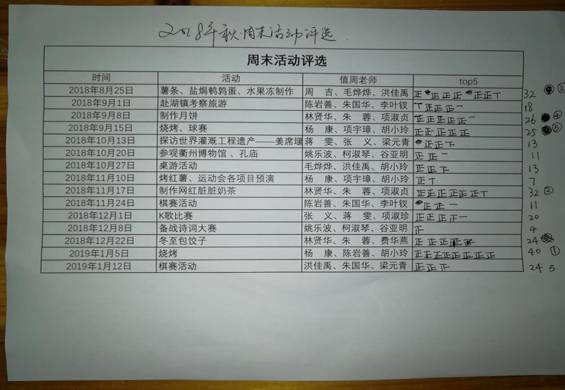 2018年秋周末活动评选
周末活动评选
时间 活动 值周老师 top5
2018年8月25日 薯条、盐焗鹌鹑蛋、水果冻制作 周 吉、毛烨烨、洪佳禹 32
2018年9月1日 赴湖镇考察旅游 陈岩善、朱国华、李叶钗 正正正一 18
2018年9月8日 制作月饼 林贤华、朱 蓉、项淑贞 正正正正正一 26 ④
2018年9月15日 烧烤、球赛 杨 康、项宇璋、胡小玲 正正正正正 25
2018年10月13日 探访世界灌溉工程遗产——姜席堰 蒋 雯、张 义、梁元青 13
2018年10月20日 参观衢州博物馆、孔庙 姚乐波、柯淑琴、谷亚明 正正一 11
2018年10月27日 桌游活动 毛烨烨、洪佳禹、胡小玲 正正下 13
2018年11月10日 烤红薯、运动会各项目预演 杨 康、项宇璋、胡小玲 正丅 7
2018年11月17日 制作网红脏脏奶茶 林贤华、朱 蓉、项淑贞 正正正正正正丅 32
2018年11月24日 棋赛活动 陈岩善、朱国华、李叶钗 正正一 11
2018年12月1日 K歌比赛 张 义、蒋 雯、项淑珍 20
2018年12月8日 备战诗词大赛 姚乐波、柯淑琴、谷亚明 4
2018年12月22日 冬至包饺子 林贤华、朱 蓉、费华燕 24
2019年1月5日 烧烤 杨 康、陈岩善、胡小玲 正正正正正正正正 40 ①
2019年1月12日 棋赛活动 洪佳禹、朱国华、梁元青 正正下 24 5